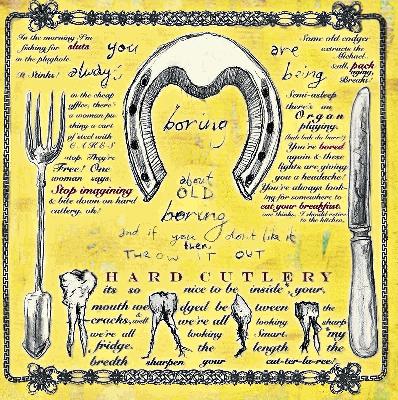 In the morning I'm
fishing for sluts
in the plughole
It Stinks!
you
always
are
being
Some old codger
extracts the
Michael.
call, pack
aging,
Breaks!
in the cheap
office, there's
a woman pu
shing a cart
of steel with
C A K E S
atop. They're
Free! One
woman says,
Stop imagining
& bite down on hard
cutlery. oh!
boring
about
OLD
boring
and if you dont like it
then
THROW IT OUT
Semi-asleep
there's an
Organ
playing.
You're bored
again & these
lights are giving
you a headache!
You're always look-
ing for somewhere to
eat your breakfast.
one thinks, I should retire
to the kitchen.
HARD CUTLERY
its so nice to be inside your,
mouth we dged be tween the sharp
cracks, well we're all looking my
we're all looking Smart the
fridge. the length
bredth sharpen your cut-ter-la-ree!